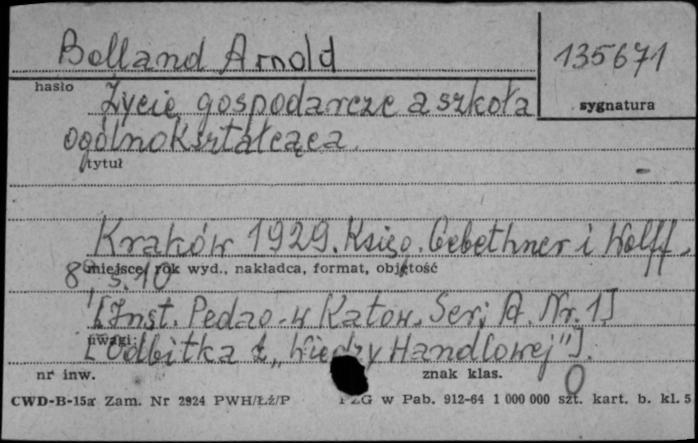 Bolland Arnold
135671
hasło
sygnatura
Życie gospodarcze a szkoła
ogólnokształcąca.
tytuł
Kraków 1929. Księg. Gebethner i Wolff.
miejsce, rok wyd., nakładca, format, objętość
8°, s. 10
[Inst. Pedag. w Katow. Serj A. Nr. 1]
uwagi
[Odbitka z „Wiedzy Handlowej"].
nr inw.
znak klas.
CWD-B-15a Zam. Nr 2924 PWH/Łź/P
PZG w Pab. 912-64 1 000 000 szt. kart. b. kl. 5